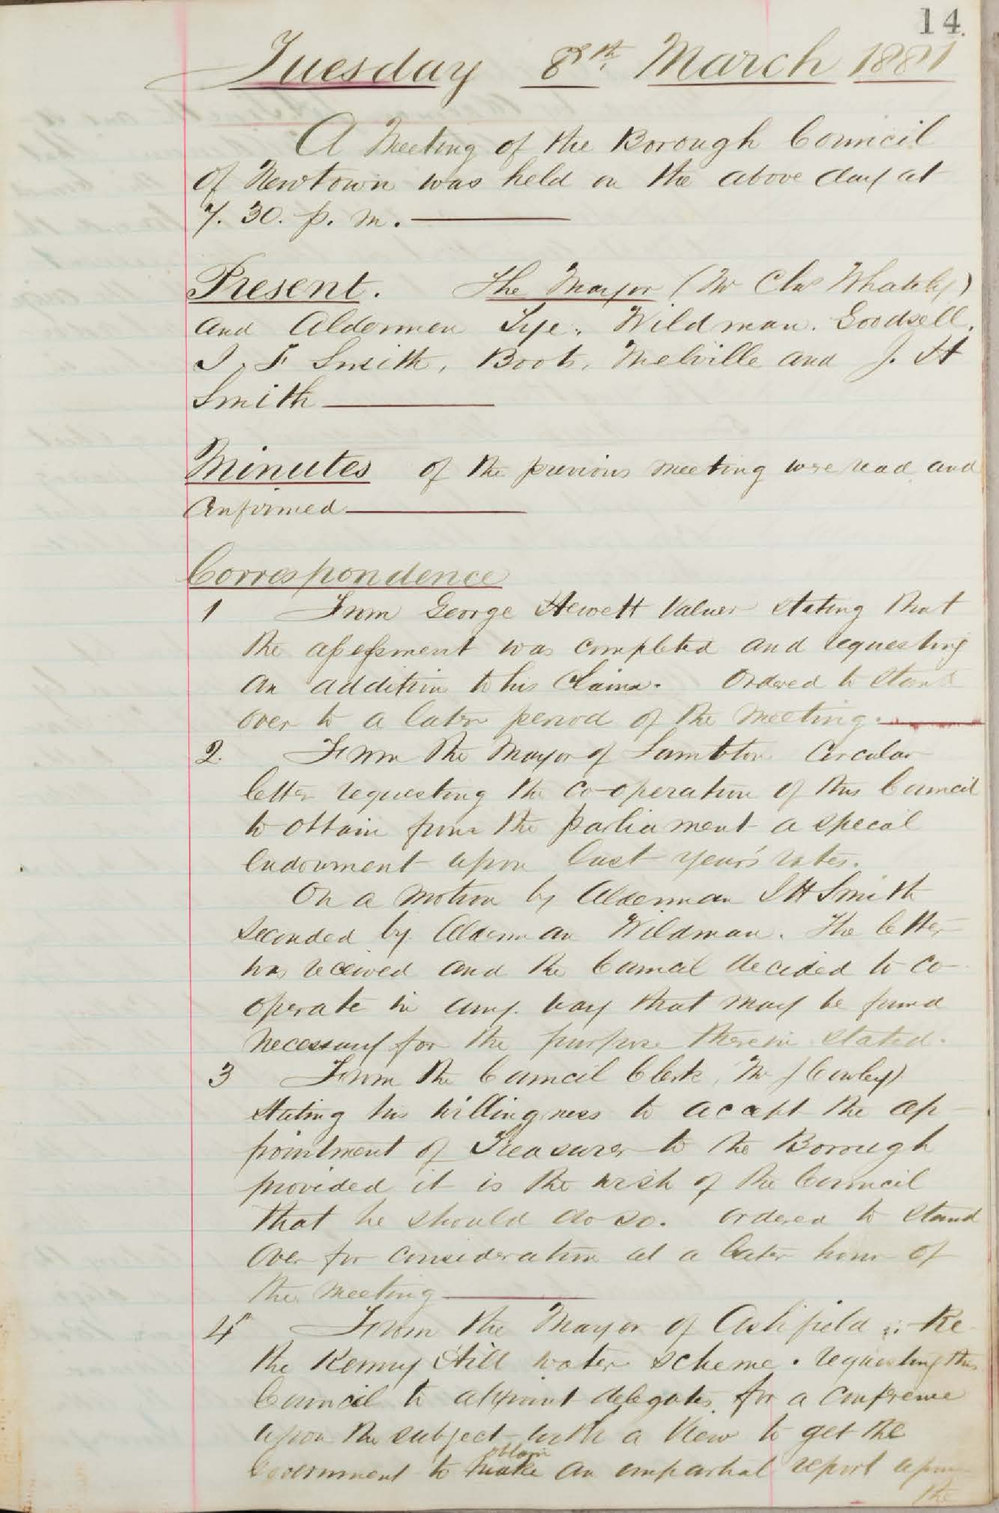 14.
Tuesday 8th March 1881
A Meeting of the Borough Council
of Newtown was held on the above day at
7. 30. p. m.
Present. The Mayor (Mr Chs Whately)
and Aldermen Tye, Wildman. Goodsell,
J. F Smith, Boots, Melville and J. H
Smith
Minutes of the previous meeting were read and
Confirmed
Correspondence
1 From George Hewett Valuer stating that
the assessment was completed and requesting
an addition to his Claim. Ordered to stand
over to a later period of the meeting.
2. From the Mayor of Lambton Circular
letter requesting the Co-operation of this Council
to obtain from the parliament a specal
Endowment upon last year's rates.
On a motion by Alderman J H Smith
Seconded by Alderman Wildman. The letter
was received and the Council decided to co-
operate in any way that may be found
necessary for the purpose therein stated.
3 From the Council Clerk, Mr
stating his willingness to accept the ap-
pointment of Treasurer to the Borough
provided it is the wish of the Council
that he should do so. Ordered to stand
over for consideration at a later hour of
the meeting
4 From the Mayor of Ashfield Re
the Kenny Hill water scheme. requesting this
Council to appoint delegates for a Conference
upon the subject with a view to get the
Government to make obtain an impartial report upon
the